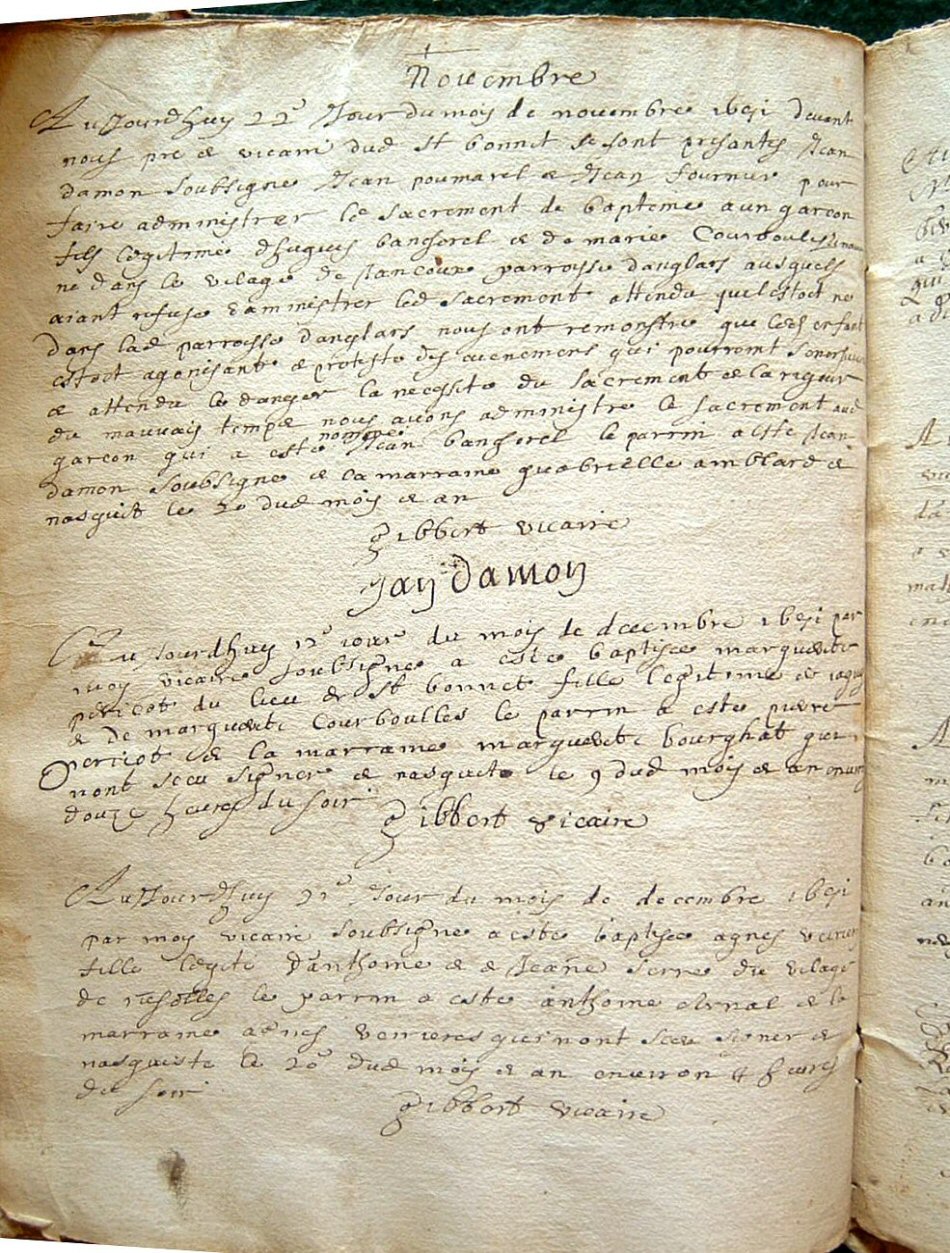 Novembre
Aujourdhuy 22e Jour du mois de novembre 1691 devant
nous pre & vicaire dud St bonnet se sont presantes Jean
damon soubsigne Jean poumarel & Jean fournier pour
faire administrer le sacrement de bapteme a un garcon
fils legitime dhugues bangherel & de marie Courboules
ne dans le vilage de Jancoux parroisse danglars ausquels
aiant refuse daministrer led sacrement attendu quil estoit ne
dans lad parroisse danglars nous ont remonstre que led enfant
estoit agonisant & proteste des evenemens qui pourront
& attendu le danger la necessite du sacrement & la rigeur
du mauvais temps nous avons administre le sacrement aud
garcon qui a este nomme Jean bangherel le parrin a este Jean
damon soubsigne & la marraine guabrielle amblard &
nasquit le 20 dud mois & an
gibbert vicaire
Jan Damon
Aujourdhuy 12e iour du mois de decembre 1691 par
moy vicaire soubsigne a este baptisee marguerite
pericot du lieu de St bonnet fille legitime de
& de marguerite Courboulles le parrin a este pierre
pericot & la marraine marguerite bourghat qui
nont sceu signer & nasquite le 9 dud mois & an
douze heures du soir
gibbert vicaire
Aujourdhuy 21e Jour du mois de decembre 1691
par moy vicaire soubsigne a este baptisee agnes
fille legite Danthoine & de Jeane serre du vilage
de le parrin a este anthoine & la
marraine agnes verrieres qui nont sceu signer &
nasquiste le 20e dud mois & an environ 4 heures
du soir
gibbert vicaire